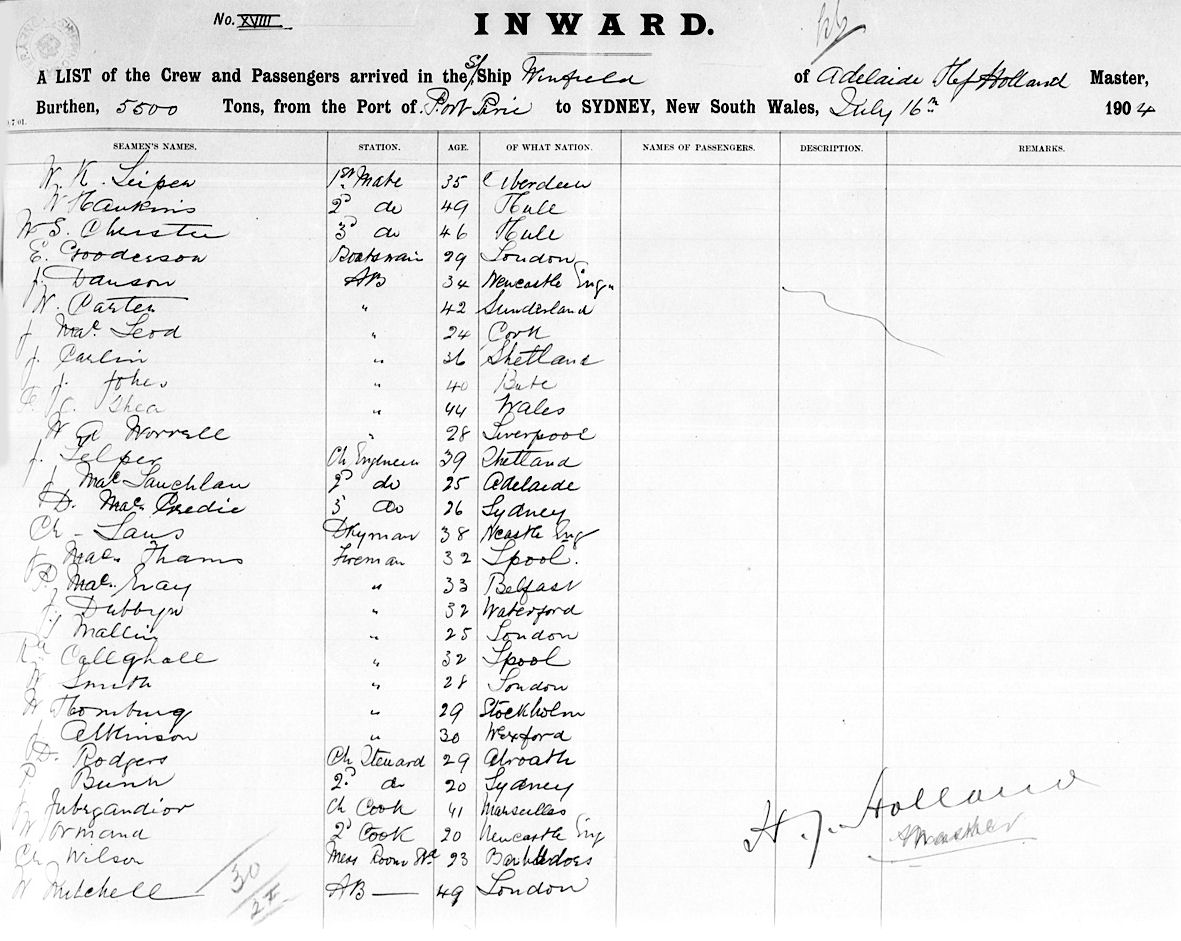 No. XVIII
INWARD.
A LIST of the Crew and Passengers arrived in the S/Ship Winfield of Adelaide Holland Master,
Burthen, 5500 Tons, from the Port of Port Pirie to SYDNEY, New South Wales, July 16th 1904
SEAMEN'S NAMES. STATION. AGE. OF WHAT NATION. NAMES OF PASSENGERS. DESCRIPTION. REMARKS.
W. K. Leiper 1st Mate 35 Aberdeen
W Hawkins 2d do 49 Hull
W S. Chester 3d do 46 Hull
E. Gooderson Boatswain 29 London
J. Dawson AB 34 Newcastle Eng
W. Carter " 42 Sunderland
J Mac Leod " 24 Cork
J. Carlin " 36 Shetland
J. " 40 Bute
Shea " 44 Wales
W A Worrell " 28 Liverpool
J. Telper Ch Engineer 39 Shetland
J Mac Lauchlan 2d do 25 Adelaide
D. Mac Credie 3 do 26 Sydney
Ch Laws Dkyman 38 Ncastle Eng
Mac Thams Fireman 32 Lpool.
P. Mac " 33 Belfast
J. Dubbyn " 32 Waterford
J Malling " 25 London
Callghall " 32 Lpool
W Smith " 28 London
W Thornburg " 29 Stockholm
J Atkinson " 30 Wexford
D. Rodgers Ch Steward 29 Abroath
P Bunn 2d do 20 Sydney
Jubegandior Ch Cook 41 Marseilles
W Ormand 2d Cook 20 Newcastle Eng
Ch Wilson Mess Room Std 23 Barbadoes
W Mitchell AB 49 London
30
H. J. Holland
Master